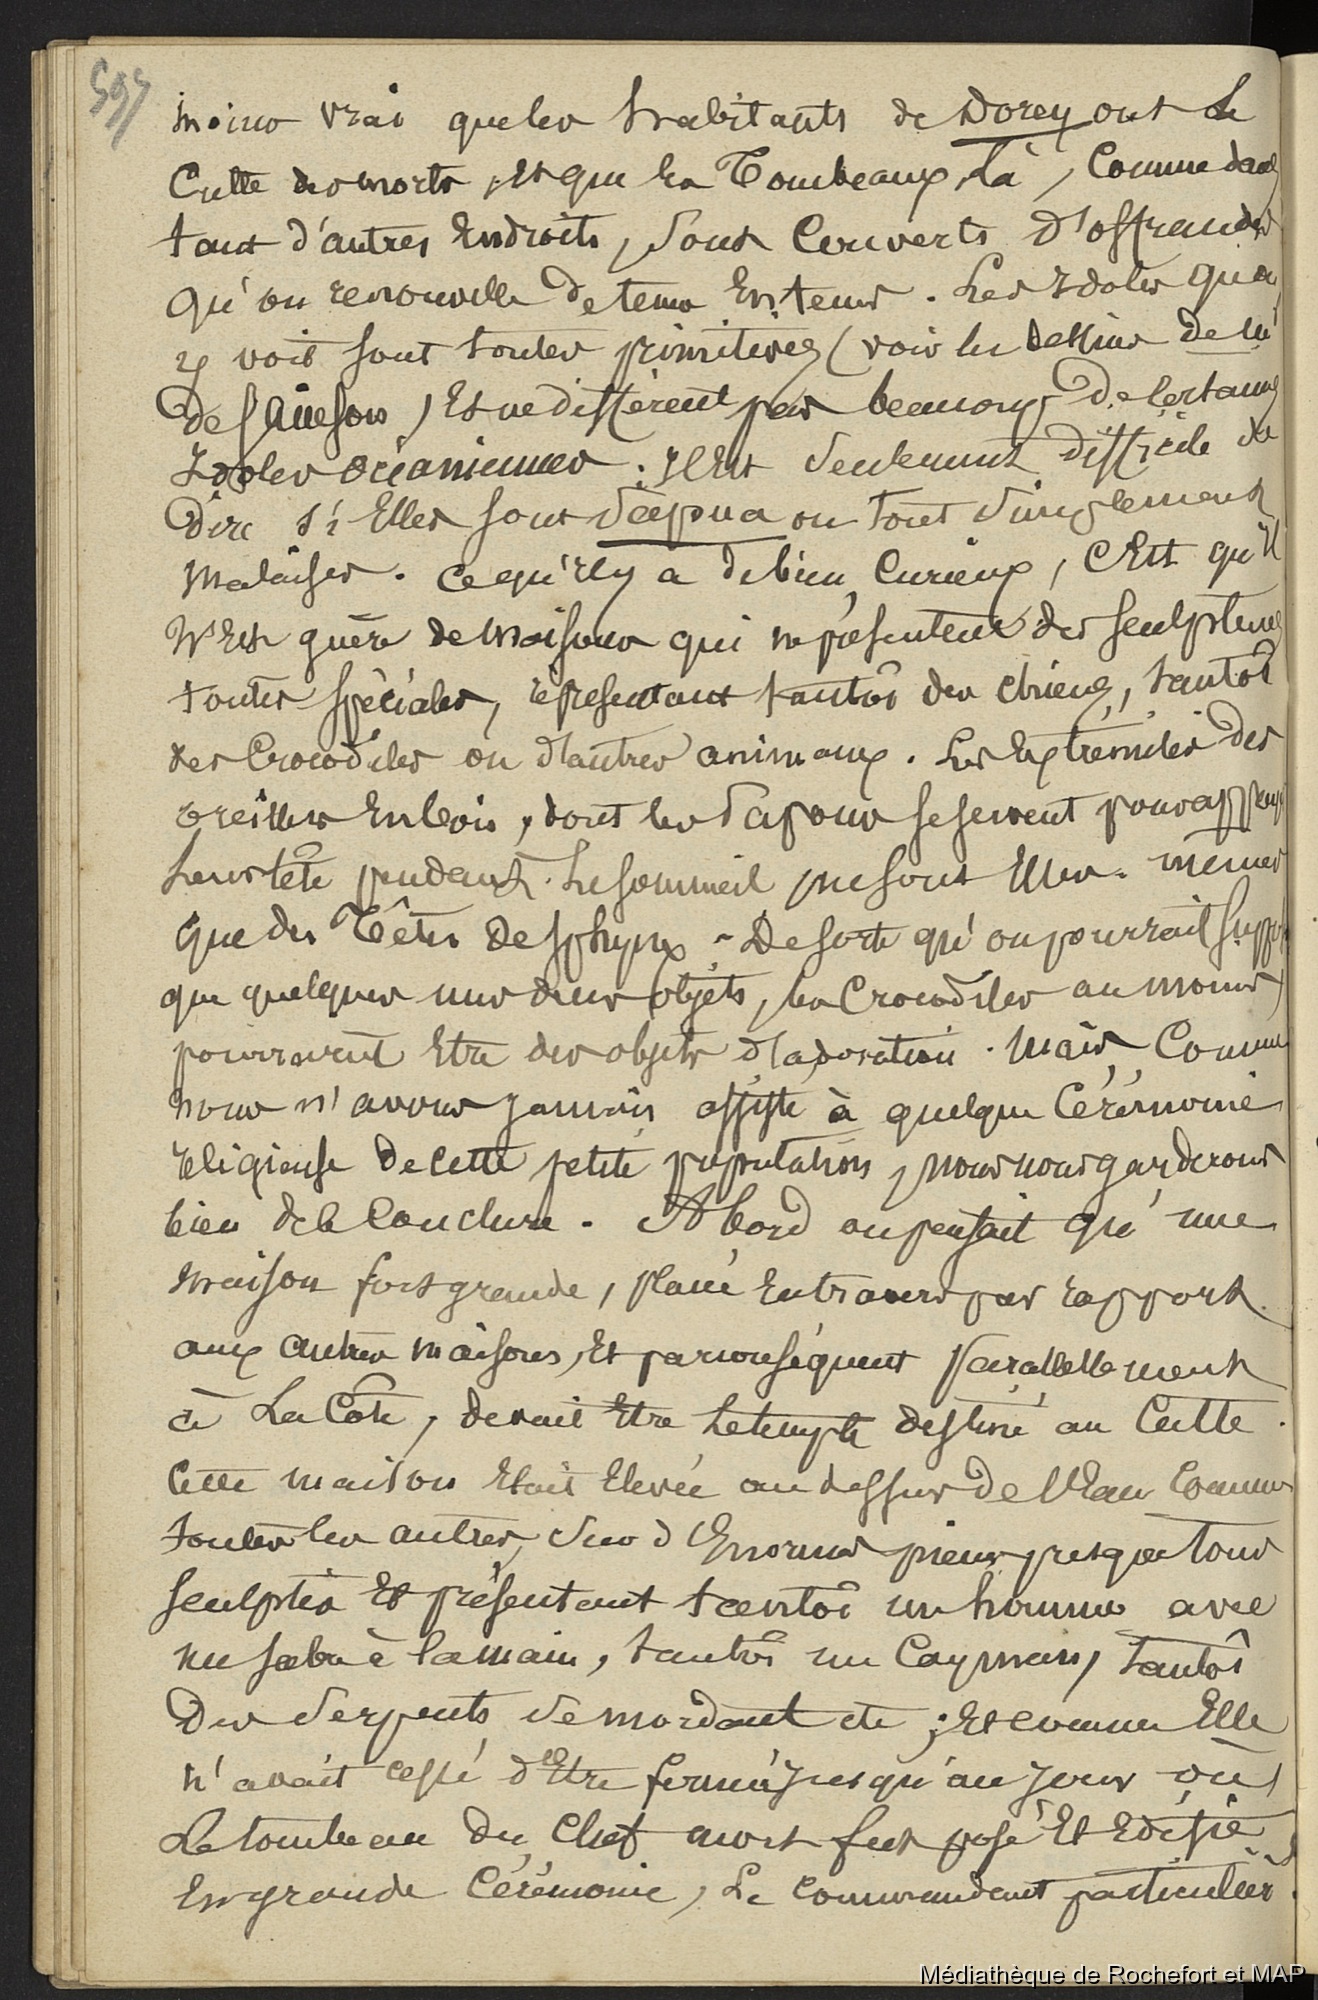 597
moins vrai que les habitants de Dorey ont le
Culte des morts, et que les Tombeaux, là, Comme dans
tant d'autres Endroits, sont Couverts d'offrandes
qu'on renouvelle de tems En tems. Les Idoles qu'on
y voit sont toutes primitives (voir les dessins de Mr
de Sainson), Et ne diffèrent pas beaucoup de certaines
Idoles océaniennes. Il Est seulement difficile de
dire si Elles sont papua ou tout simplement
Malaises. Ce qu'il y a de bien Curieux, C'Est qu'il
N'Est guère de maisons qui ne présentent des sculptures
toutes spéciales, représentant tantôt des chiens, tantôt
des Crocodiles ou d'autres animaux. Les Extrémités des
oreillers En bois, dont les Papous se servent pour appuyer
leur tête pendant le sommeil ne sont Elles-mêmes
que des Têtes de sphynx. De sorte qu'on pourrait suppo
que quelques uns de ces objets, les Crocodiles au moins,
pourraient Etre des objets d'adoration. Mais, Comme
nous n'avons jamais assisté à quelque Cérémonie
religieuse de cette petite population, nous nous garderons
bien de le Conclure. A bord on pensait qu'une
maison fort grande, placée En travers par rapport
aux autres maisons, Et par conséquent parallellement
à La Côte, devait Etre le temple destiné au Culte.
Cette maison Etait Elevée au dessus de l'Eau Comme
toutes les autres, sur d'Enormes pieux presque tous
sculptés Et présentant tantôt un homme avec
un sabre à la main, tantôt un Cayman, tantôt
des serpents se mordant etc; Et comme Elle
n'avait cessé d'Etre fermée jusqu'au jour où
Le tombeau du Chef mort fut posé Et Edifié
En grande Cérémonie, Le Commandant particulier
Médiathèque de Rochefort et MAP